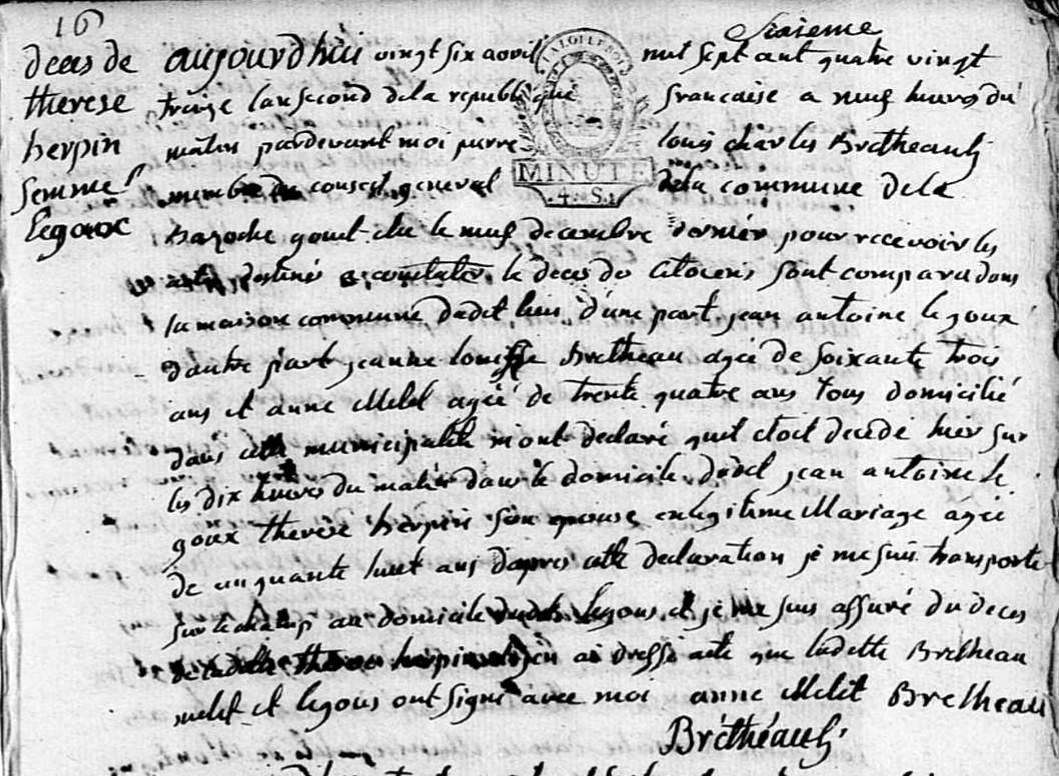 16
Sixieme
deces de
therese
herpin
femme
legoux
aujourdhui vingt six avril mil sept cent quatre vingt
treize lan second dela republique francaise a neuf heures du
matin pardevant moi pierre louis charles Bretheault
LA LOI LE ROI
MINUTE
4. S.
membre du conseil general dela commune dela
Bazoche gouet elu le neuf decembre dernier pour recevoir les
actes destinés a constater le deces des citoiens sont comparu dans
la maison commune dudit lieu d'une part jean antoine legoux
dautre part jeanne louise Bretheau agée de soixante trois
ans et anne Melet agéé de trente quatre ans tous domicilié
dans cette municipalité mont declaré quil etoit decedé hier sur
les dix heures du matin dans le domicile dudit jean antoine le
goux therese herpin son epouse en legitime Mariage agéé
de cinquante huit ans dapres cette declaration je me suis transporté
sur le champ au domicile dudit legoux et je me suis assuré du deces
de laditte therese herpin jen ai dressé acte que laditte Bretheau
melet et legoux ont signé avec moi anne Melet Bretheau
Brétheault